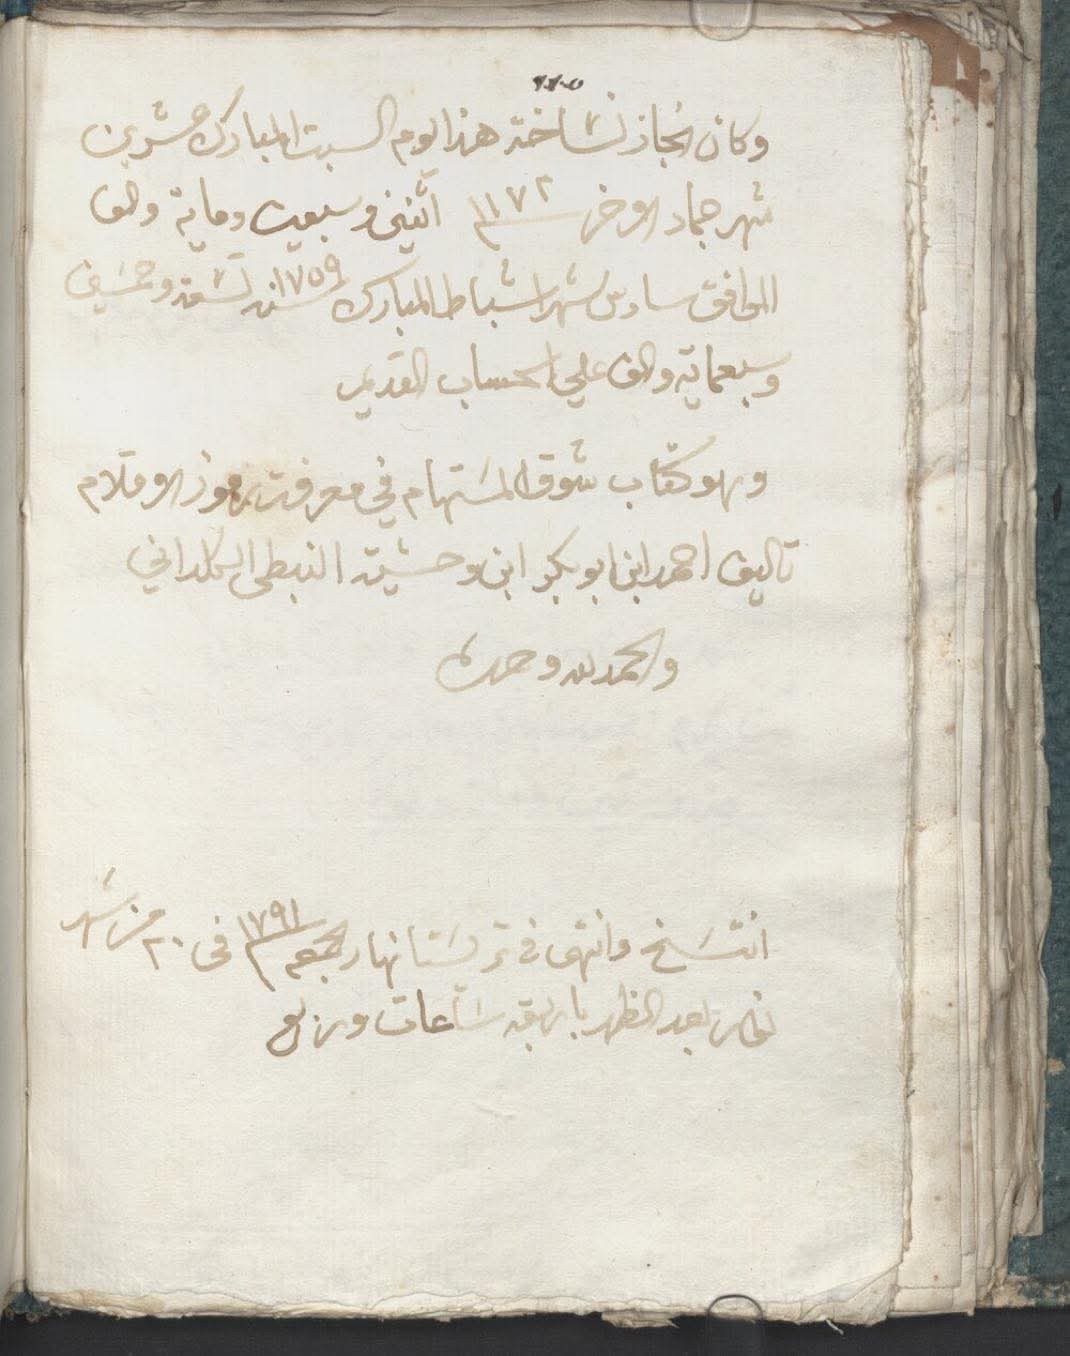 ٢٢٥
وكان انجاز نساخته هذا يوم السبت المبارك عشرين
شهر جماد الاخر سنة ١١٧٢ اثنين وسبعين وماية والف
الموافق سادس شهر اشباط المبارك سنة ١٧٥٩ تسعة وخمسين
وسبعماية والف علي الحساب القديم
وهو كتاب شوق المستهام في معرفت رموز الاقلام
تاليف احمد ابن ابو بكر ابن وحشية النبطي الكلداني
والحمد لله وحده
انتسخ وانتهى في تريستا نهار الجمعه سنة ١٧٩١ في ٢٠ من شهر
بعد الظهر باربعة ساعات وربع